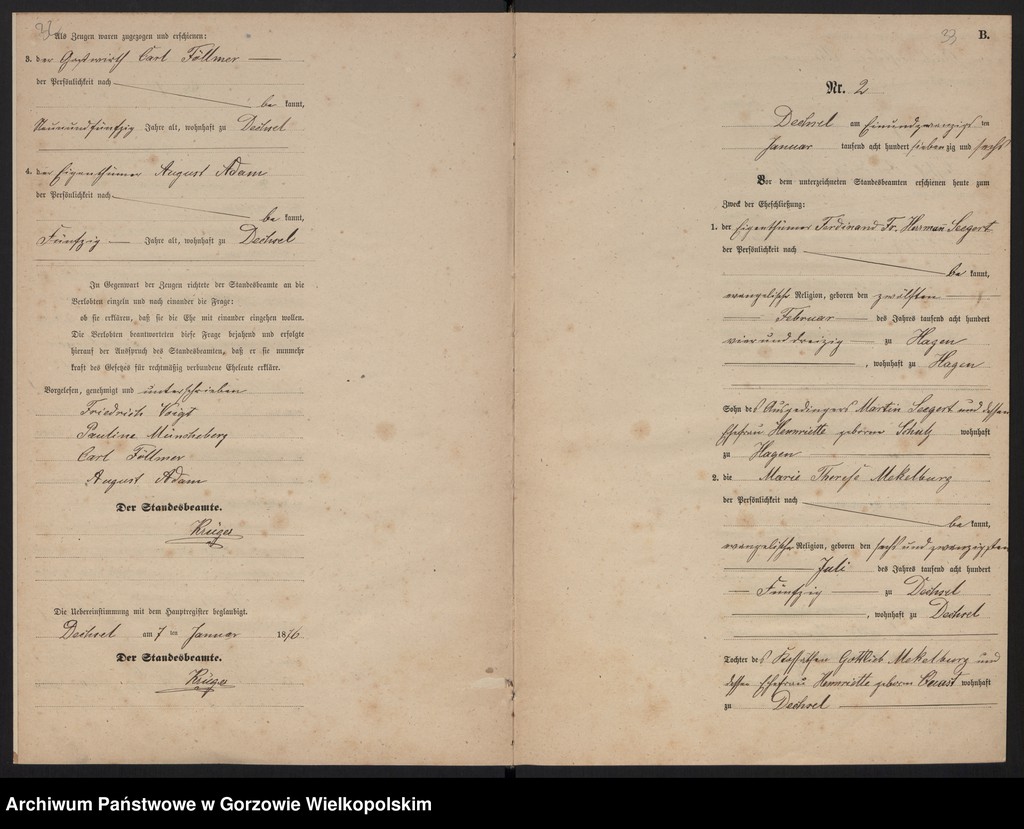 Als Zeugen waren zugezogen und erschienen:
3. der Gastwirth Carl Föllmer
der Persönlichkeit nach
be kannt,
Neunundfünfzig Jahre alt, wohnhaft zu Dechsel
4. der Eigenthümer August Adam
der Persönlichkeit nach
be kannt,
Fünfzig Jahre alt, wohnhaft zu Dechsel
In Gegenwart der Zeugen richtete der Standesbeamte an die
Verlobten einzeln und nach einander die Frage:
ob sie erklären, daß sie die Ehe mit einander eingehen wollen.
Die Verlobten beantworteten diese Frage bejahend und erfolgte
hierauf der Ausspruch des Standesbeamten, daß er sie nunmehr
kraft des Gesetzes für rechtmäßig verbundene Eheleute erkläre.
Vorgelesen, genehmigt und unterschrieben
Friedrich Voigt
Pauline Müncheberg
Carl Föllmer
August Adam
Der Standesbeamte.
Krüger
Die Uebereinstimmung mit dem Hauptregister beglaubigt.
Dechsel am 7 ten Januar 1876
Der Standesbeamte.
Krüger
33 B.
Nr. 2
Dechsel am Einundzwanzigs ten
Januar tausend acht hundert siebenzig und sechs
Vor dem unterzeichneten Standesbeamten erschienen heute zum
Zweck der Eheschließung:
1. der Eigenthümer Ferdinand Fr. Herrmann Seegert
der Persönlichkeit nach
be kannt,
evangelischer Religion, geboren den zwölften
Februar des Jahres tausend acht hundert
vierunddreizig zu Hagen
, wohnhaft zu Hagen
Sohn des Ausgedingers Martin Seegert und dessen
Ehefrau Hennriette geborne Schulz wohnhaft
zu Hagen
2. die Marie Therese Mekelburg
der Persönlichkeit nach
be kannt,
evangelischer Religion, geboren den sechs und zwanzigsten
Juli des Jahres tausend acht hundert
Fünfzig zu Dechsel
, wohnhaft zu Dechsel
Tochter des Kossäthen Gottlieb Mekelburg und
dessen Ehefrau Hennriette geborne wohnhaft
zu Dechsel
Archiwum Państwowe w Gorzowie Wielkopolskim